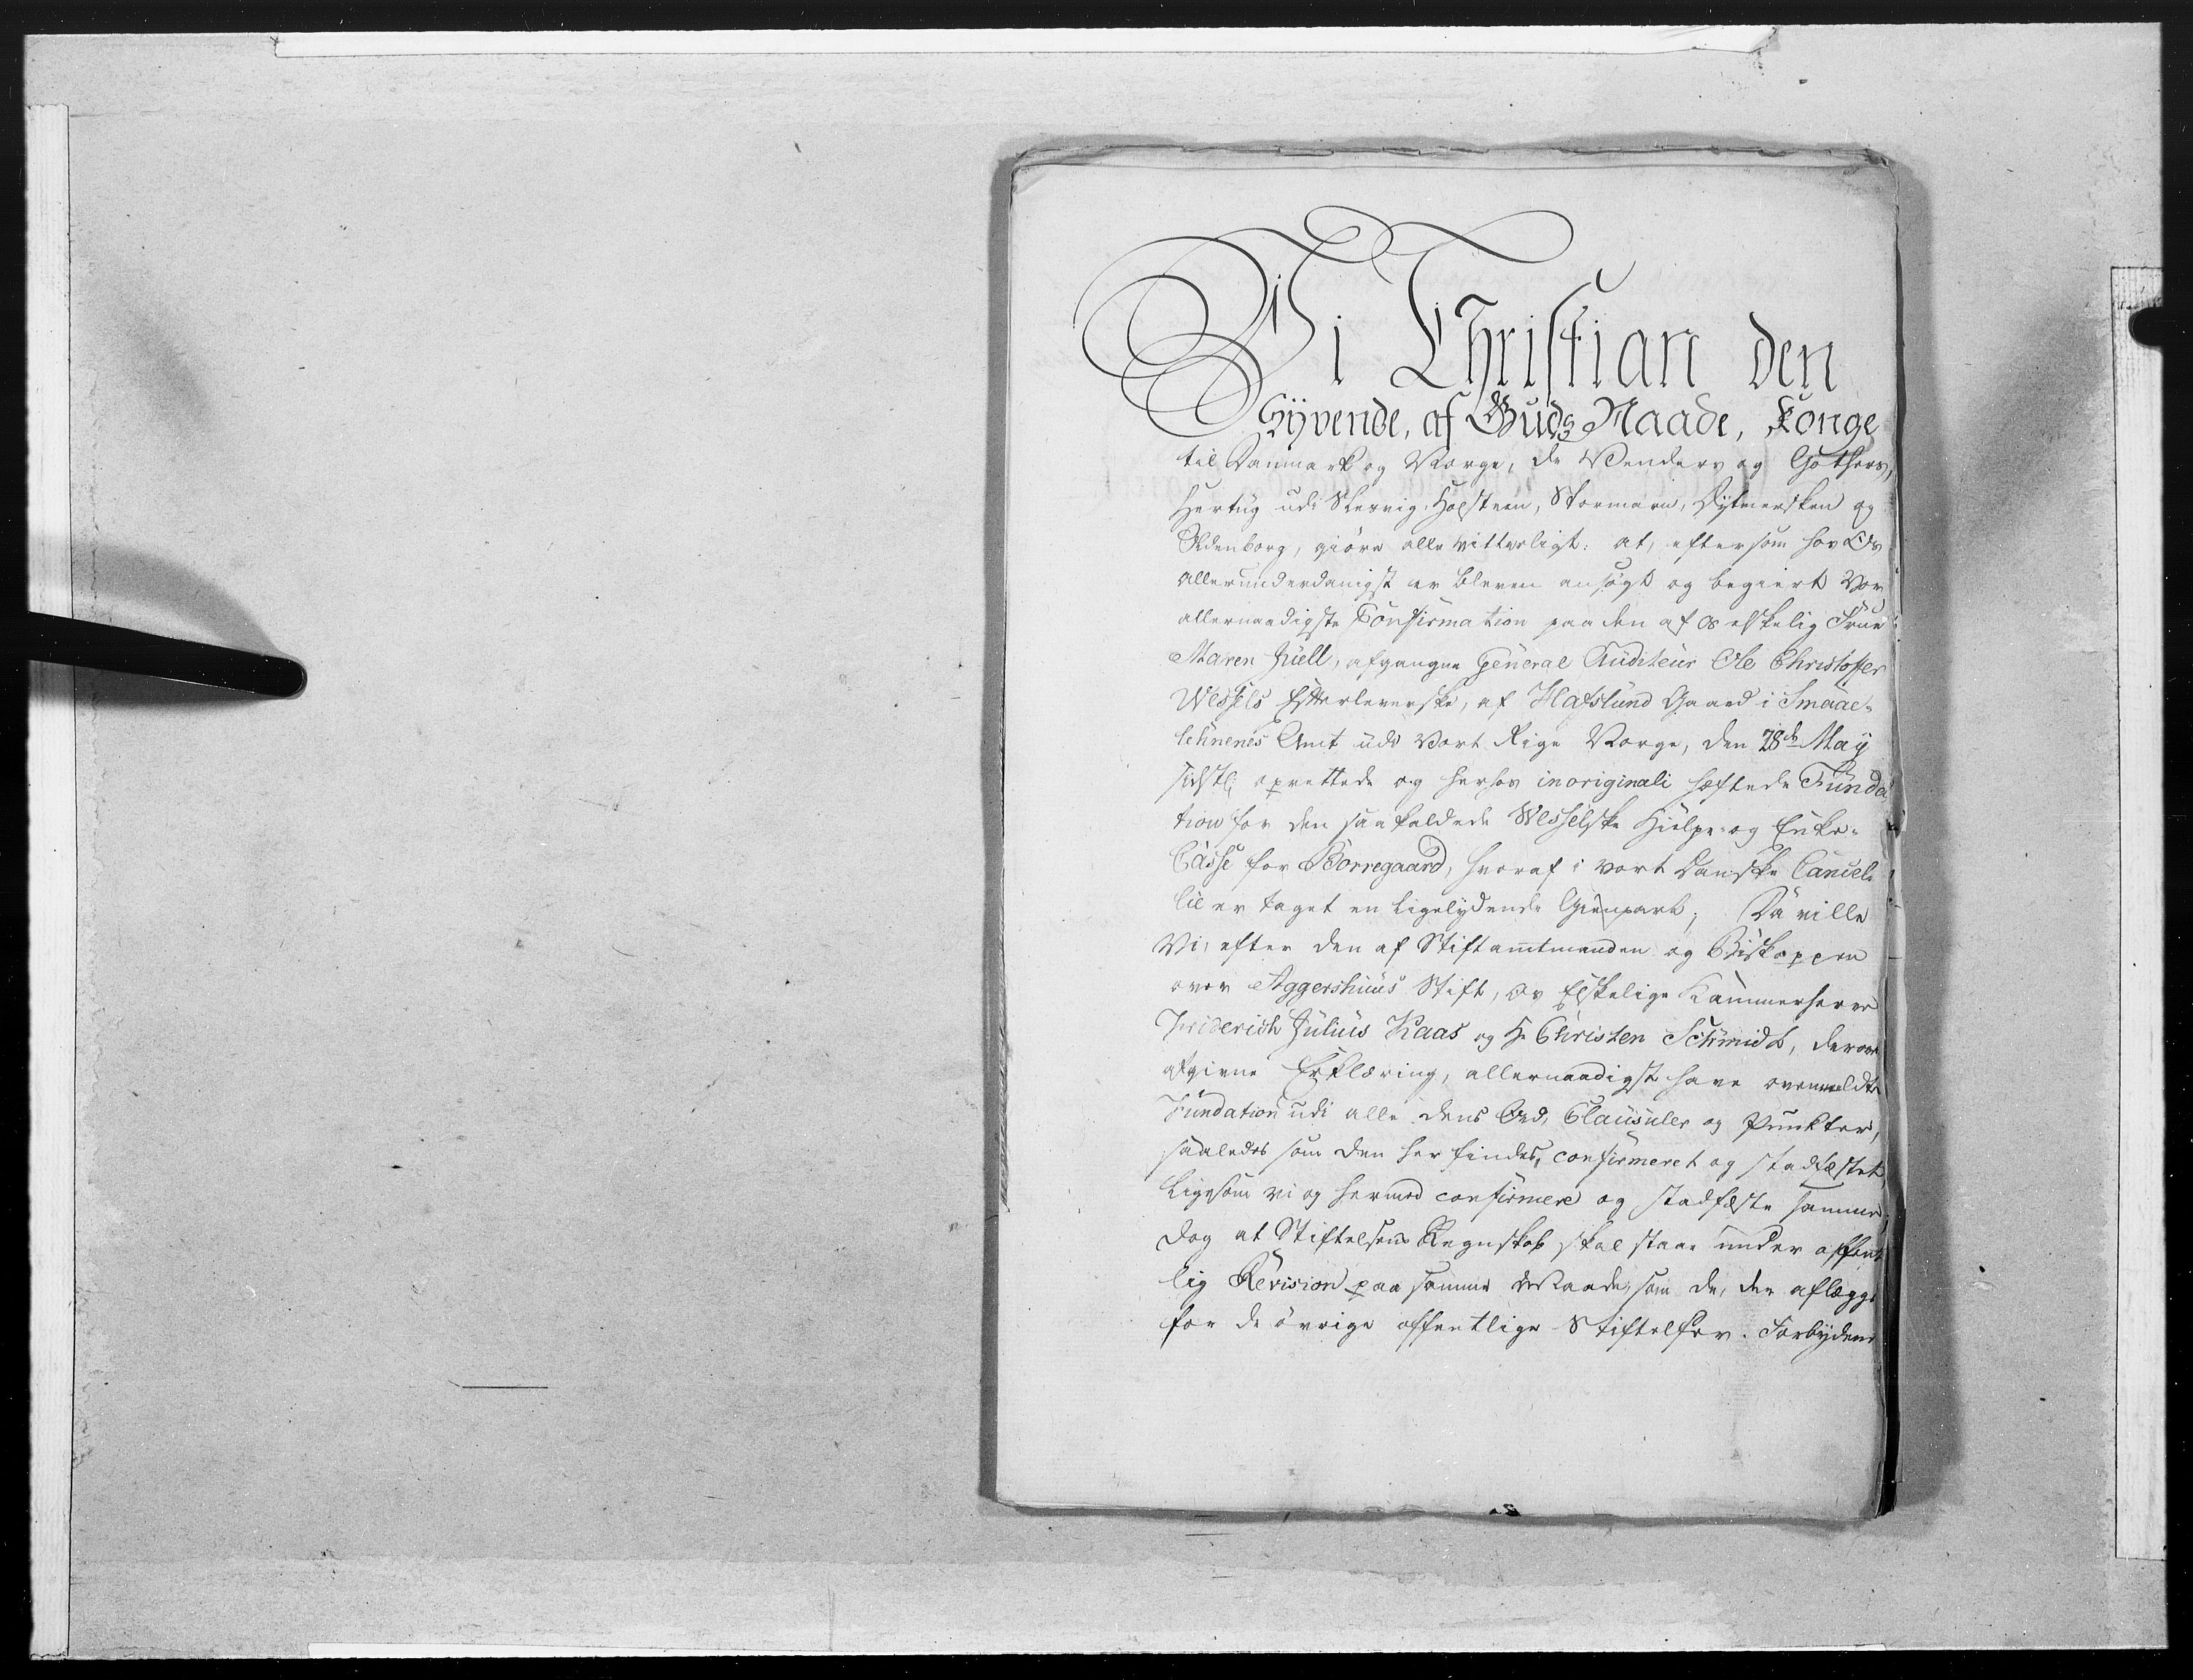 Vi Christian den
Syvende, af Guds Naade, Konge
til Danmark og Norge, de Venders og Gothers,
Hertug udi Slesvig, Holsteen, Stormarn, Dytmersken og
Oldenborg, giøre alle vitterligt: at, eftersom hos Os
allerunderdanigst er bleven ansøgt og begiert Vor
allernaadigste Confirmation paa den af Os elskelig Frue
Maren Juell, afgangne General Auditeur Ole Christoffer
Wessels Efterleverske, af Hafslund Gaard i Smaae-
lehnenes Amt udi Vort Rige Norge, den 28de May
sidstl: oprettede og herhos in originali heftede Funda-
tion for den saakaldede Wesselske Hielpe- og Enke-
Casse for Borregaard, hvoraf i vort Danske Cancel-
lie er taget en ligelydende Gienpart; Da ville
Vi, efter den af Stiftamtmanden og Biskoppen
over Aggershuus Stift, Os Elskelige Kammerherre
Friderich Julius Kaas og Hr Christen Schmidt, derover
afgivne Erklæring, allernaadigst have ovenmeldte
Fundation udi alle dens Ord, Clausuler og Puncter,
saaledes som den her findes, confirmeret og stadfæstet,
Ligesom vi og hermed confirmere og stadfæste samme,
dog at Stiftelsens Regnskab skal staae under offent-
lig Revision paa samme Maade, som de, der aflægges
for de øvrige offentlige Stiftelser. Forbydende